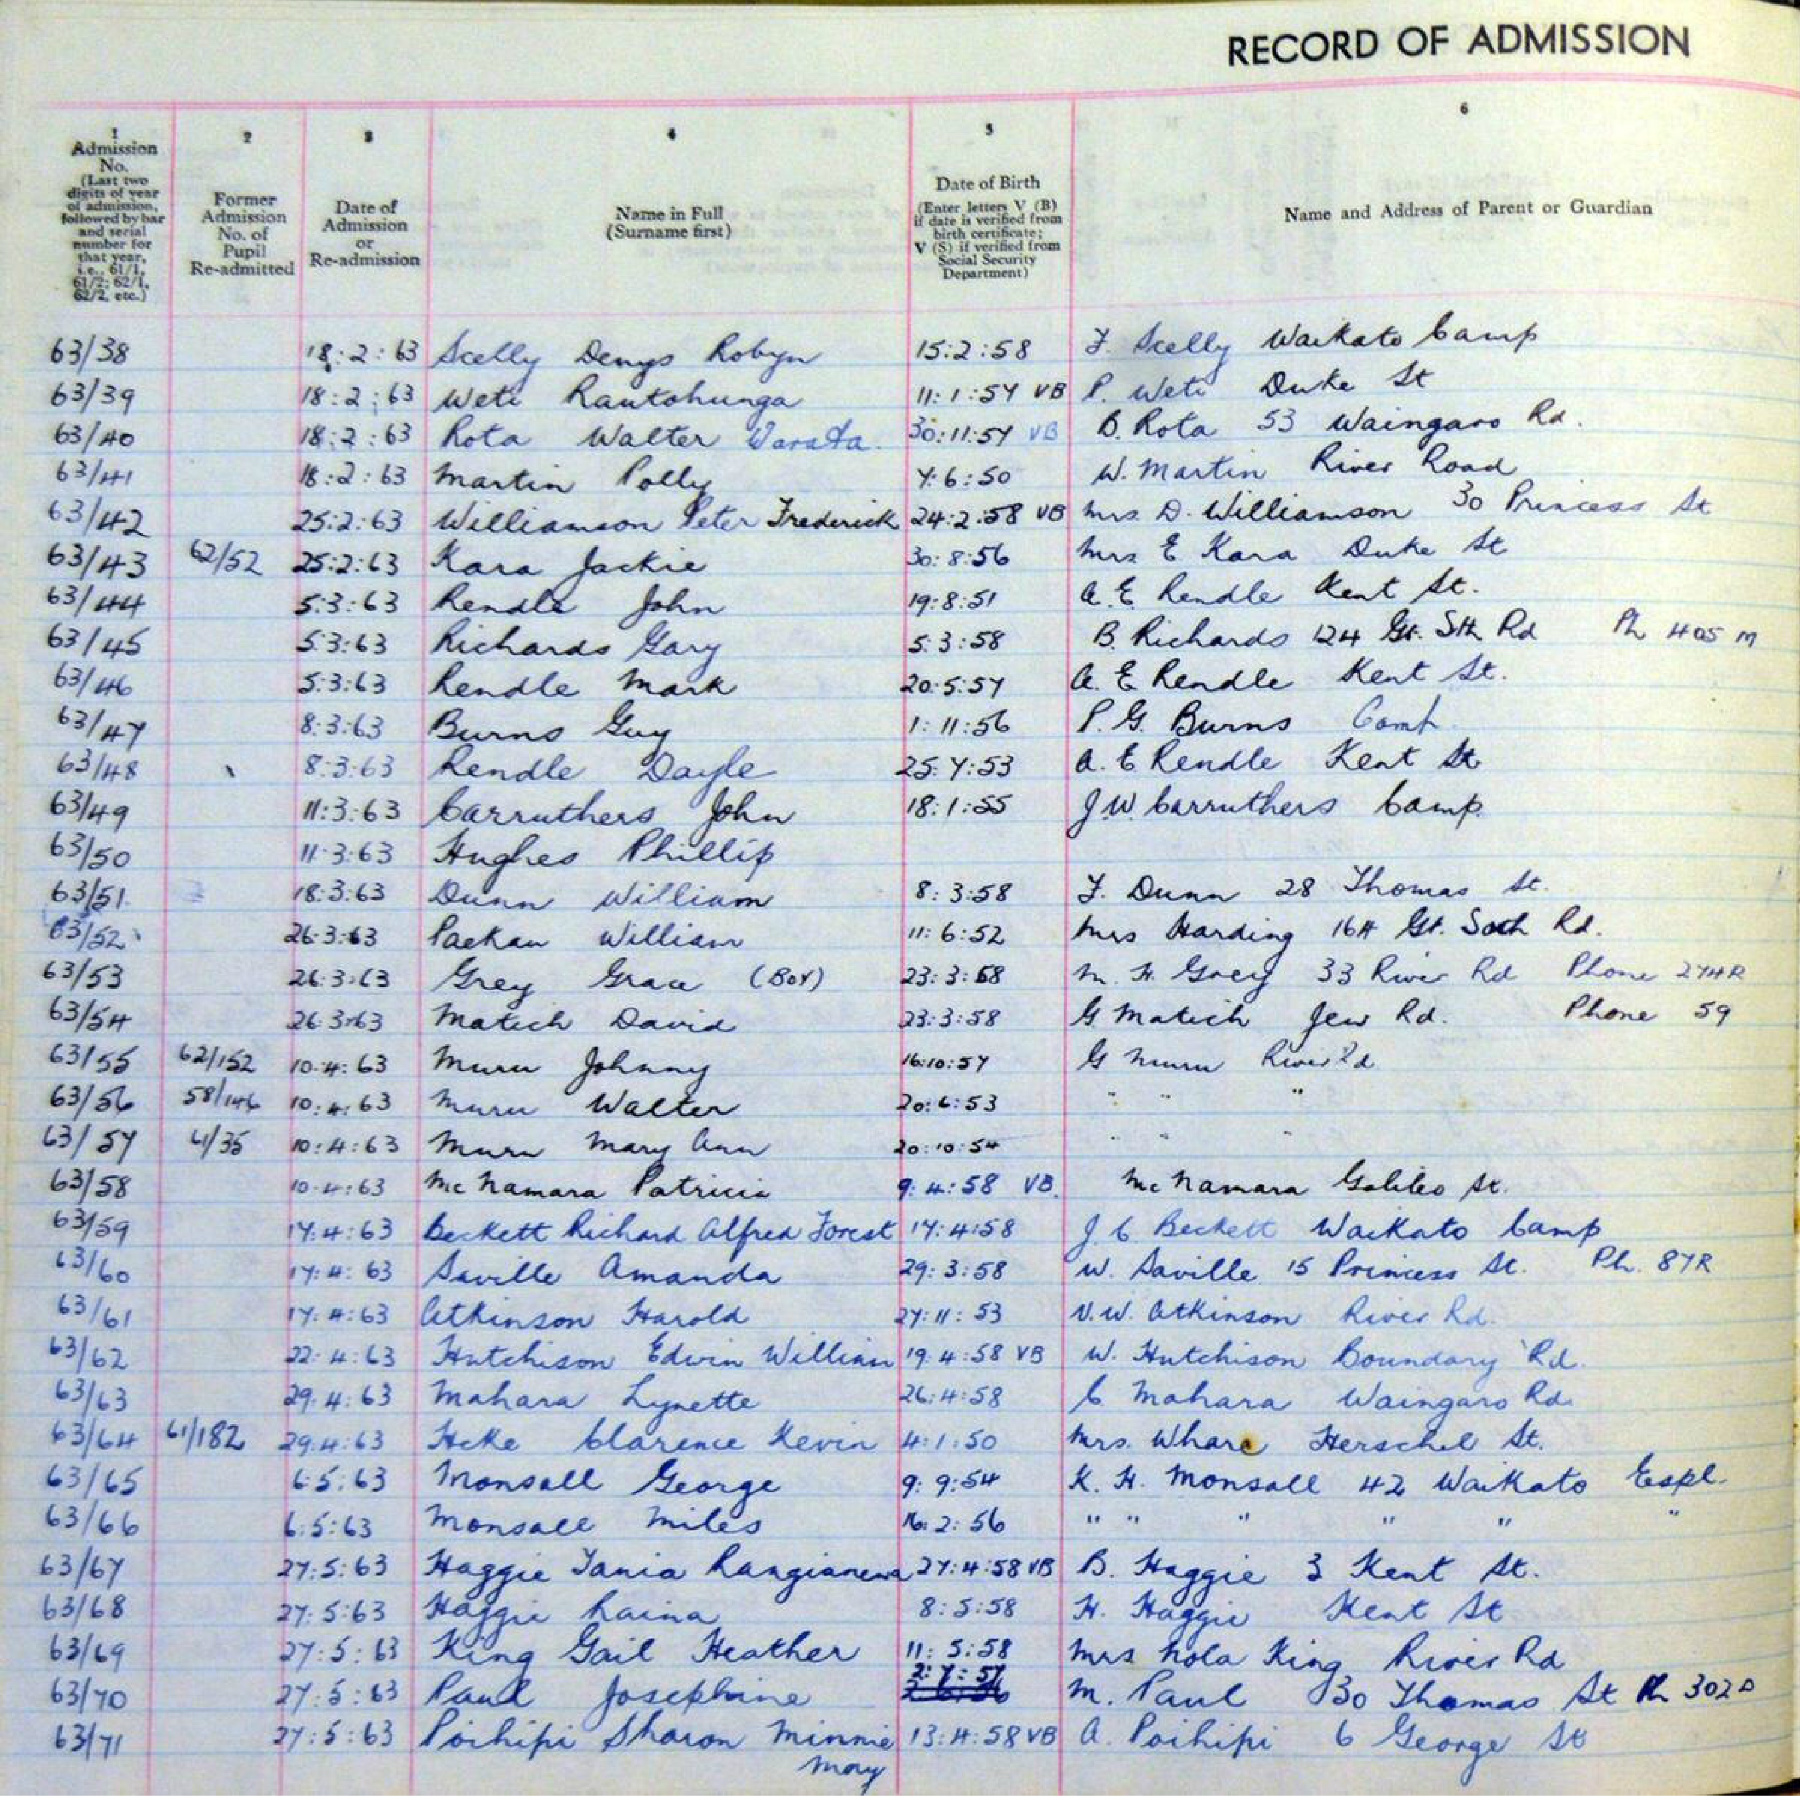 RECORD OF ADMISSION
1 2 3 4 5 6
Admission No. (Last two digits of year of admission, followed by bar and serial number for that year, i.e., 61/1, 61/2; 62/1, 62/2, etc.)
Former Admission No. of Pupil Re-admitted
Date of Admission or Re-admission
Name in Full (Surname first)
Date of Birth (Enter letters V (B) if date is verified from birth certificate; V (S) if verified from Social Security Department)
Name and Address of Parent or Guardian
63/38 18:2:63 Scelly Denys Robyn 15:2:58 F. Scelly Waikato Camp
63/39 18:2:63 Weti Rautohunga 11:1:57 VB P. Weti Duke St
63/40 18:2:63 Rota Walter 30:11:57 VB B. Rota 53 Waingaro Rd.
63/41 18:2:63 Martin Polly 7:6:50 W. Martin River Road
63/42 25:2:63 Williamson Peter Frederick 24:2:58 VB Mrs D. Williamson 30 Princess St
63/43 62/52 25:2:63 Kara Jackie 30:8:56 Mrs E Kara Duke St
63/44 5:3:63 Rendle John 19:8:51 A. E Rendle Kent St.
63/45 5:3:63 Richards Gary 5:3:58 B. Richards 124 Gt. Sth Rd Ph 405 M
63/46 5:3:63 Rendle Mark 20:5:57 A. E Rendle Kent St.
63/47 8:3:63 Burns Guy 1:11:56 P. G. Burns Camp
63/48 8:3:63 Rendle Dayle 25:7:53 A. E. Rendle Kent St
63/49 11:3:63 Carruthers John 18:1:55 J W. Carruthers Camp.
63/50 11:3:63 Hughes Phillip
63/51 18:3:63 Dunn William 8:3:58 F. Dunn 28 Thomas St.
63/52 26:3:63 Paekau William 11:6:52 Mrs Harding 164 Gt. Soth Rd.
63/53 26:3:63 Grey Grace (Boy) 23:3:58 M. H. Grey 33 River Rd Phone 274R
63/54 26:3:63 Matich David 23:3:58 G Matich Jew Rd. Phone 59
63/55 62/152 10:4:63 Muru Johnny 16:10:57 G Muru River Rd
63/56 58/146 10:4:63 Muru Walter 20:6:53 " " "
63/57 61/35 10:4:63 Muru Mary Ann 20:10:54 " " "
63/58 10:4:63 McNamara Patricia 9:4:58 VB. McNamara Galileo St.
63/59 17:4:63 Beckett Richard Alfred Forest 17:4:58 J. C. Beckett Waikato Camp
63/60 17:4:63 Saville Amanda 29:3:58 W. Saville 15 Princess St. Ph. 87R
63/61 17:4:63 Atkinson Harold 27:11:53 V. W. Atkinson River Rd.
63/62 22:4:63 Hutchison Edwin William 19:4:58 VB W. Hutchison Boundary Rd.
63/63 29:4:63 Mahara Lynette 26:4:58 C Mahara Waingaro Rd.
63/64 61/182 29:4:63 Heke Clarence Kevin 4:1:50 Mrs. Whare Herschel St.
63/65 6:5:63 Monsall George 9:9:54 K. H. Monsall 42 Waikato Espl.
63/66 6:5:63 Monsall Miles 16:2:56 " " " " " "
63/67 27:5:63 Haggie Tania Rangianewa 27:4:58 VB B. Haggie 3 Kent St.
63/68 27:5:63 Haggie Raina 8:5:58 H. Haggie Kent St
63/69 27:5:63 King Gail Heather 11:5:58 Mrs Nola King River Rd
63/70 27:5:63 Paul Josephine 2:7:57 M. Paul 30 Thomas St Ph 302D
63/71 27:5:63 Poihipi Sharon Minnie May 13:4:58 VB A. Poihipi 6 George St